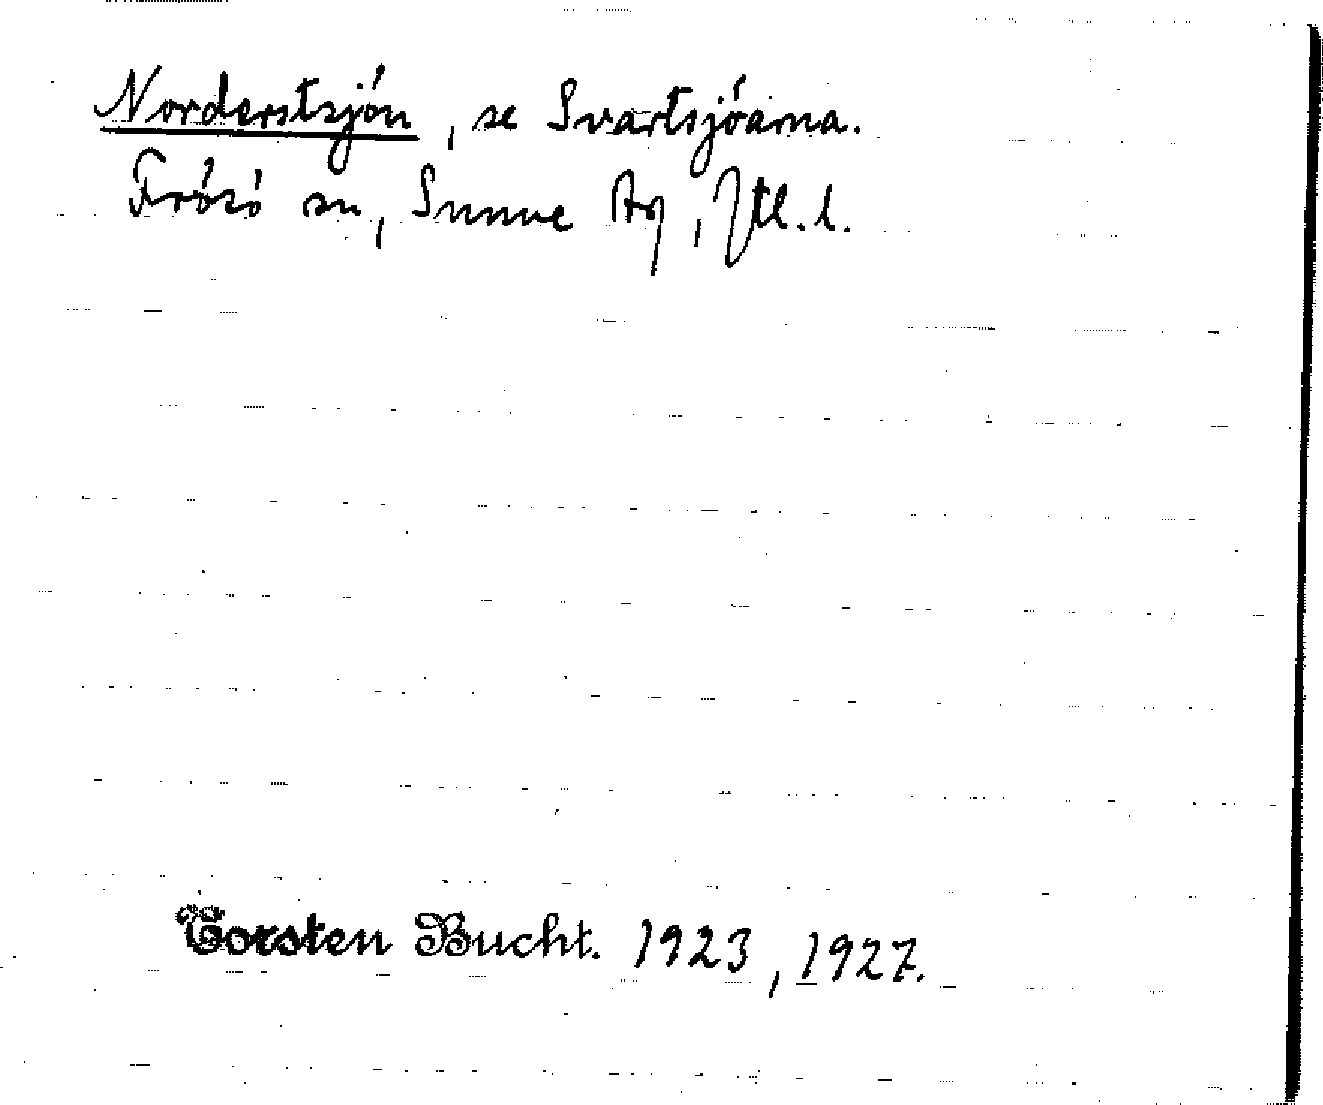 Norderstsjón, se Svartsjóarna.
Frósó sn, Sunne hg, Jtl. l.
Torsten Bucht. 1923, 1927.